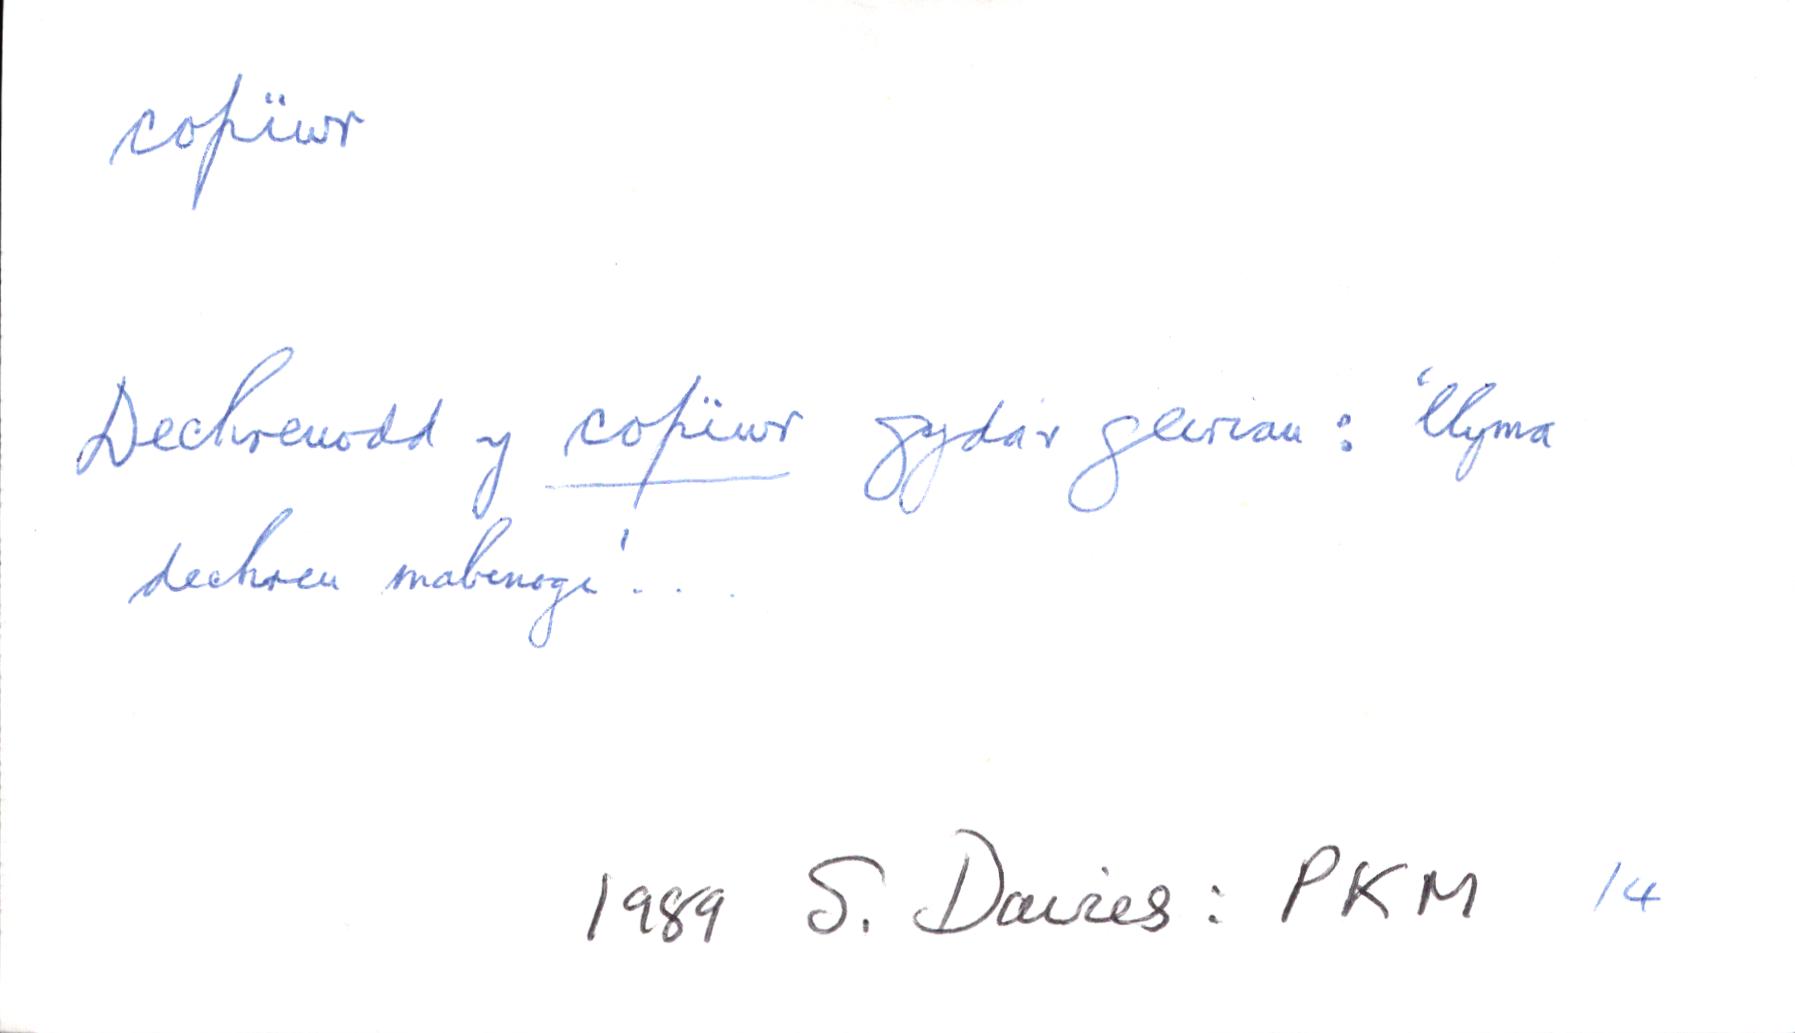 copïwr
Dechreuodd y copïwr gyda'r geiriau: 'llyma
dechreu mabinogi'...
1989 S. Davies: PKM 14